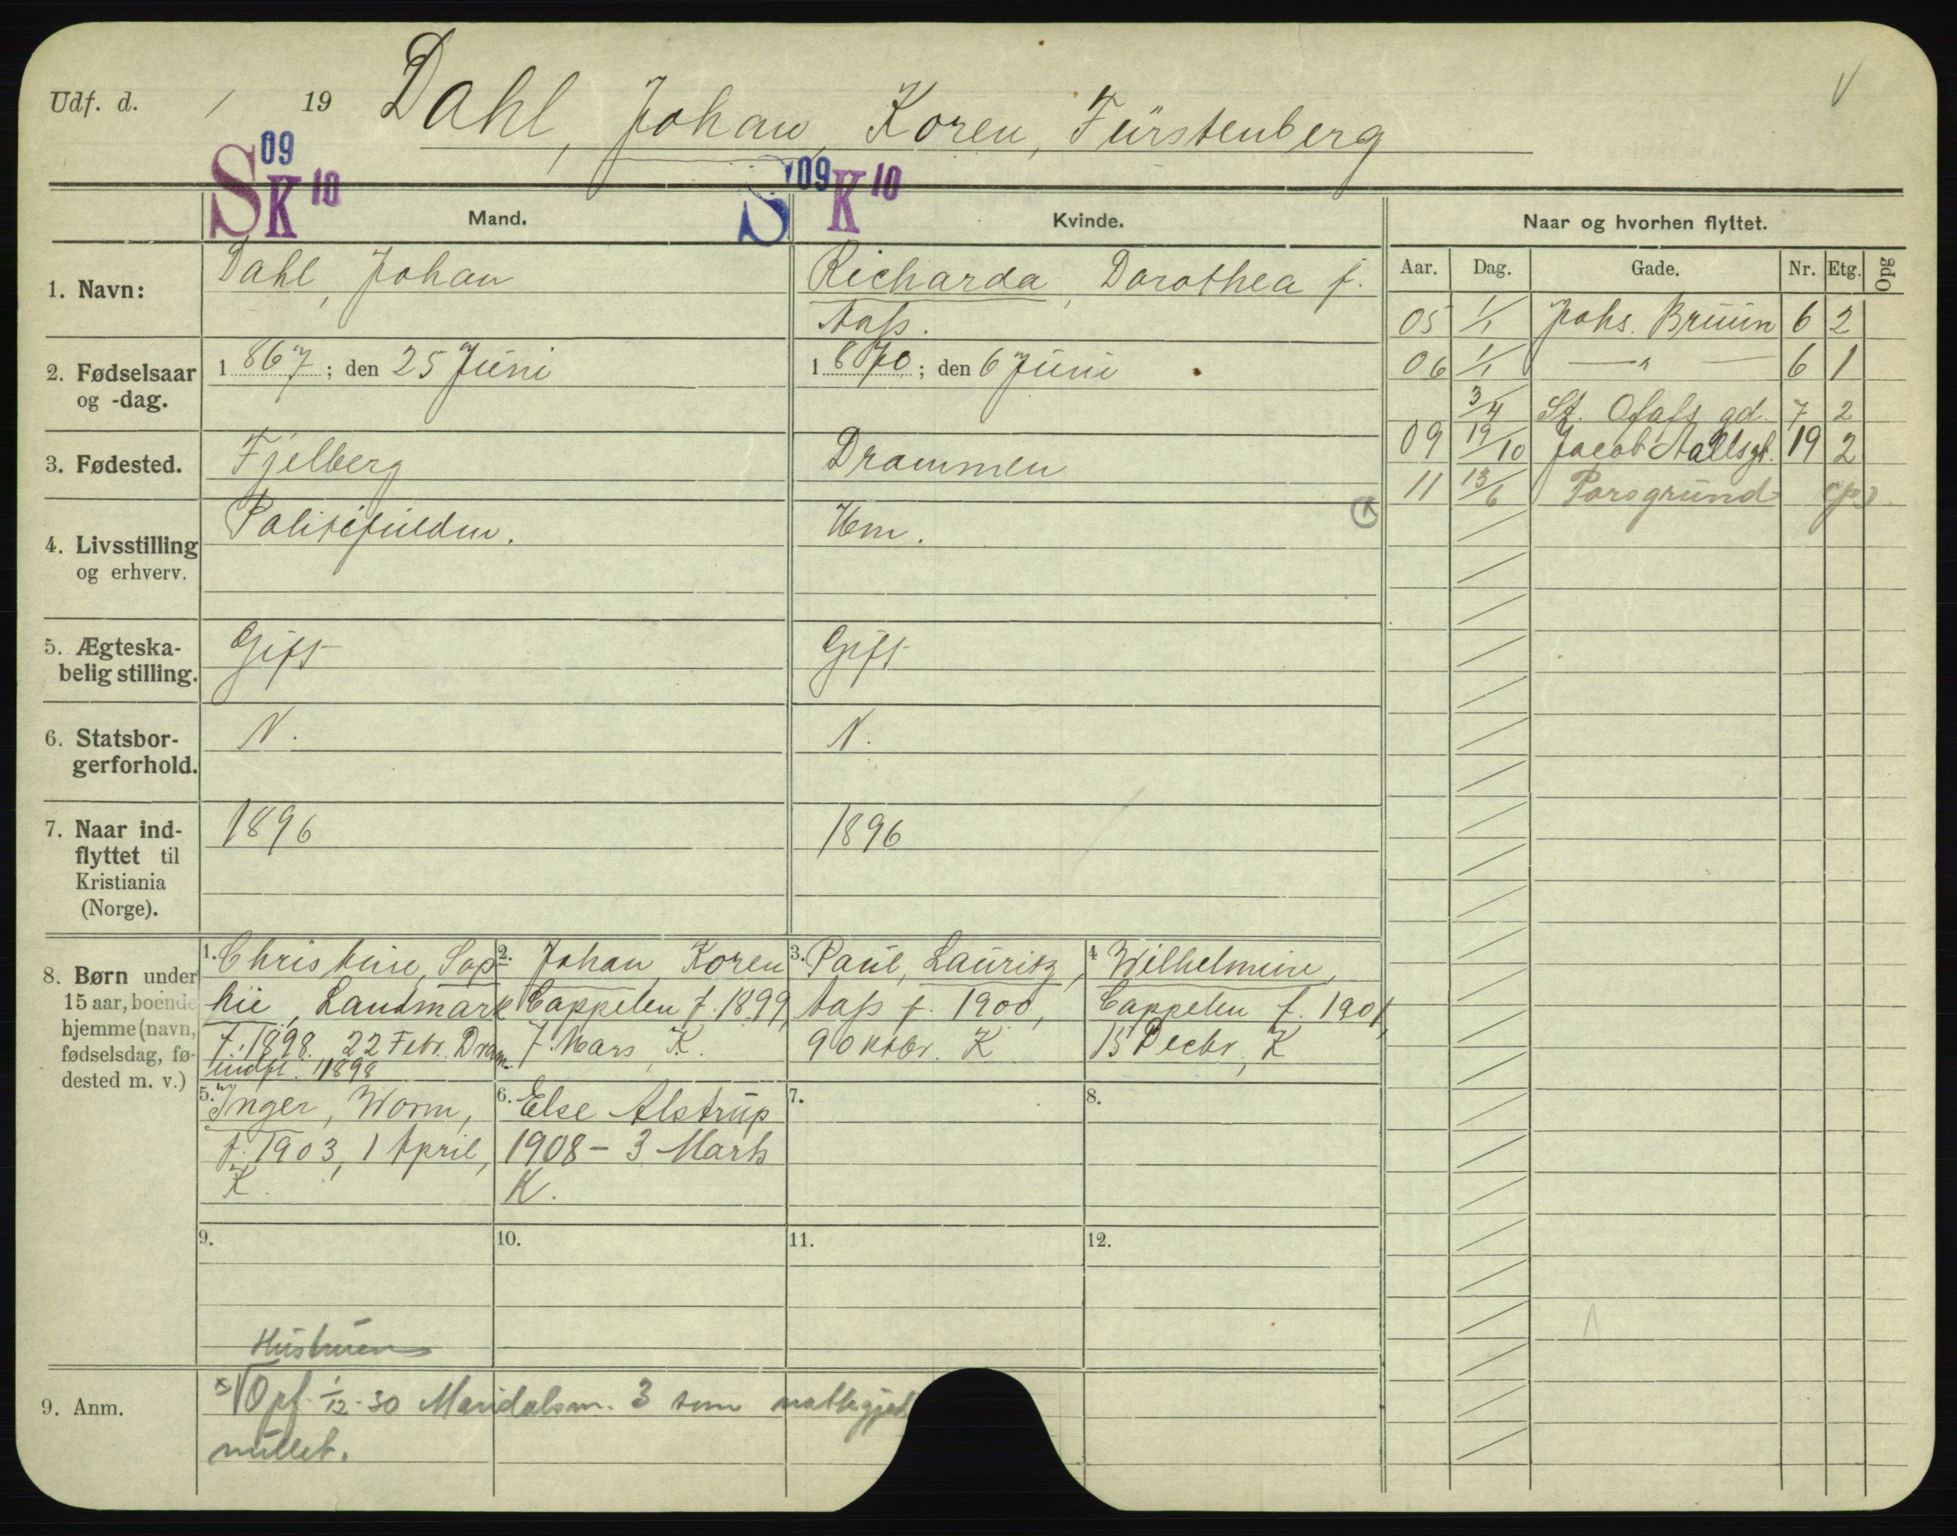 Udf. d. / 19 Dahl, Johan, Koren, Fürstenberg
V
S 09 K 10 Mand. S 09 K 10 Kvinde. Naar og hvorhen flyttet.
Aar. Dag. Gade. Nr. Etg. Opg
1. Navn: Dahl, Johan
Richarda, Dorothea f.
Aass.
2. Fødselsaar
og -dag.
1867; den 25 Juni
1870; den 6 Juni
3. Fødested. Fjelberg
Drammen
4. Livsstilling
og erhverv.
Politifuldm.
Hm.
5. Ægteska-
belig stilling.
Gift
Gift
6. Statsbor-
gerforhold.
N.
N.
7. Naar ind-
flyttet til
Kristiania
(Norge).
1896
1896
05 1/1 Johs. Bruun 6 2
06 1/1 — " — 6 1
3/4 St. Olafs gd. 7 2
09 19/10 Jacob Aallsgt. 19 2
11 13/6 Porsgrund (p)
8. Børn under
15 aar, boende
hjemme (navn,
fødselsdag, fø-
dested m. v.)
1. Christine, Sop-
hie, Landmark
f. 1898. 22 Febr. Dram.
indfl. 1898
2. Johan, Koren
Cappelen f. 1899,
7 Mars, K.
3. Paul, Lauritz,
Aass f. 1900,
9 Oktbr. K
4 Wilhelmine,
Cappelen f. 1901,
15 Decbr, K
5. Inger, Worm,
f. 1903, 1 April,
K.
6. Else Alstrup
1908 – 3 Marts
K.
7.
8.
9.
10.
11.
12.
Hustruen
9. Anm. x) Opf. 1/12-30 Maridalsvn. 3 som